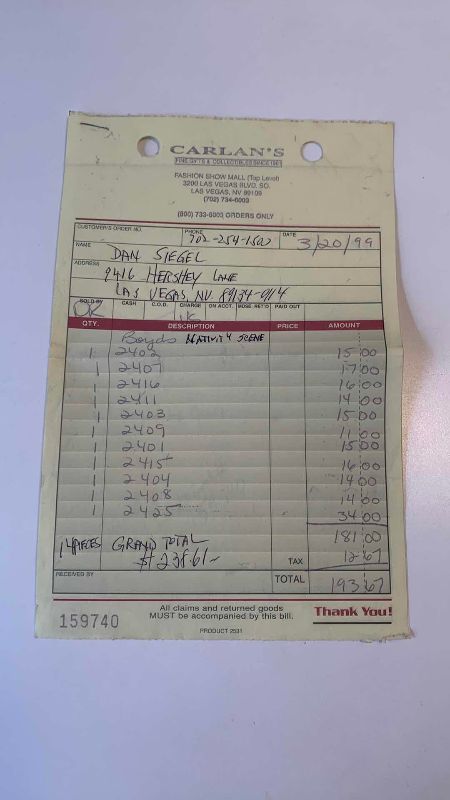 CARLAN'S
FINE GIFTS & COLLECTIBLES SINCE 1961
FASHION SHOW MALL (Top Level)
3200 LAS VEGAS BLVD. SO.
LAS VEGAS, NV 89109
(702) 734-6003
(800) 733-6003 ORDERS ONLY
CUSTOMER'S ORDER NO. PHONE 702-254-1500 DATE 3/20/99
NAME DAN SIEGEL
ADDRESS 9416 HERSHEY LANE
LAS VEGAS, NV. 89134-0114
SOLD BY CASH C.O.D. CHARGE ON ACCT. MDSE. RET'D PAID OUT
QTY. DESCRIPTION PRICE AMOUNT
Boyds NATIVITY SCENE
1 2402 15 00
1 2407 17 00
1 2416 16 00
1 2411 14 00
1 2403 15 00
1 2409 11 00
1 2401 15 00
1 2415 16 00
1 2404 14 00
1 2408 14 00
1 2425 34 00
181 00
14 PIECES GRAND TOTAL
$ 238.61~ TAX 12.67
RECEIVED BY TOTAL 193.67
159740 All claims and returned goods MUST be accompanied by this bill. Thank You!
PRODUCT 2531